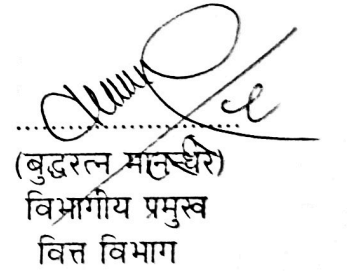 (बुद्धरत्न मानन्धर)
विभागीय प्रमुख
वित्त विभाग